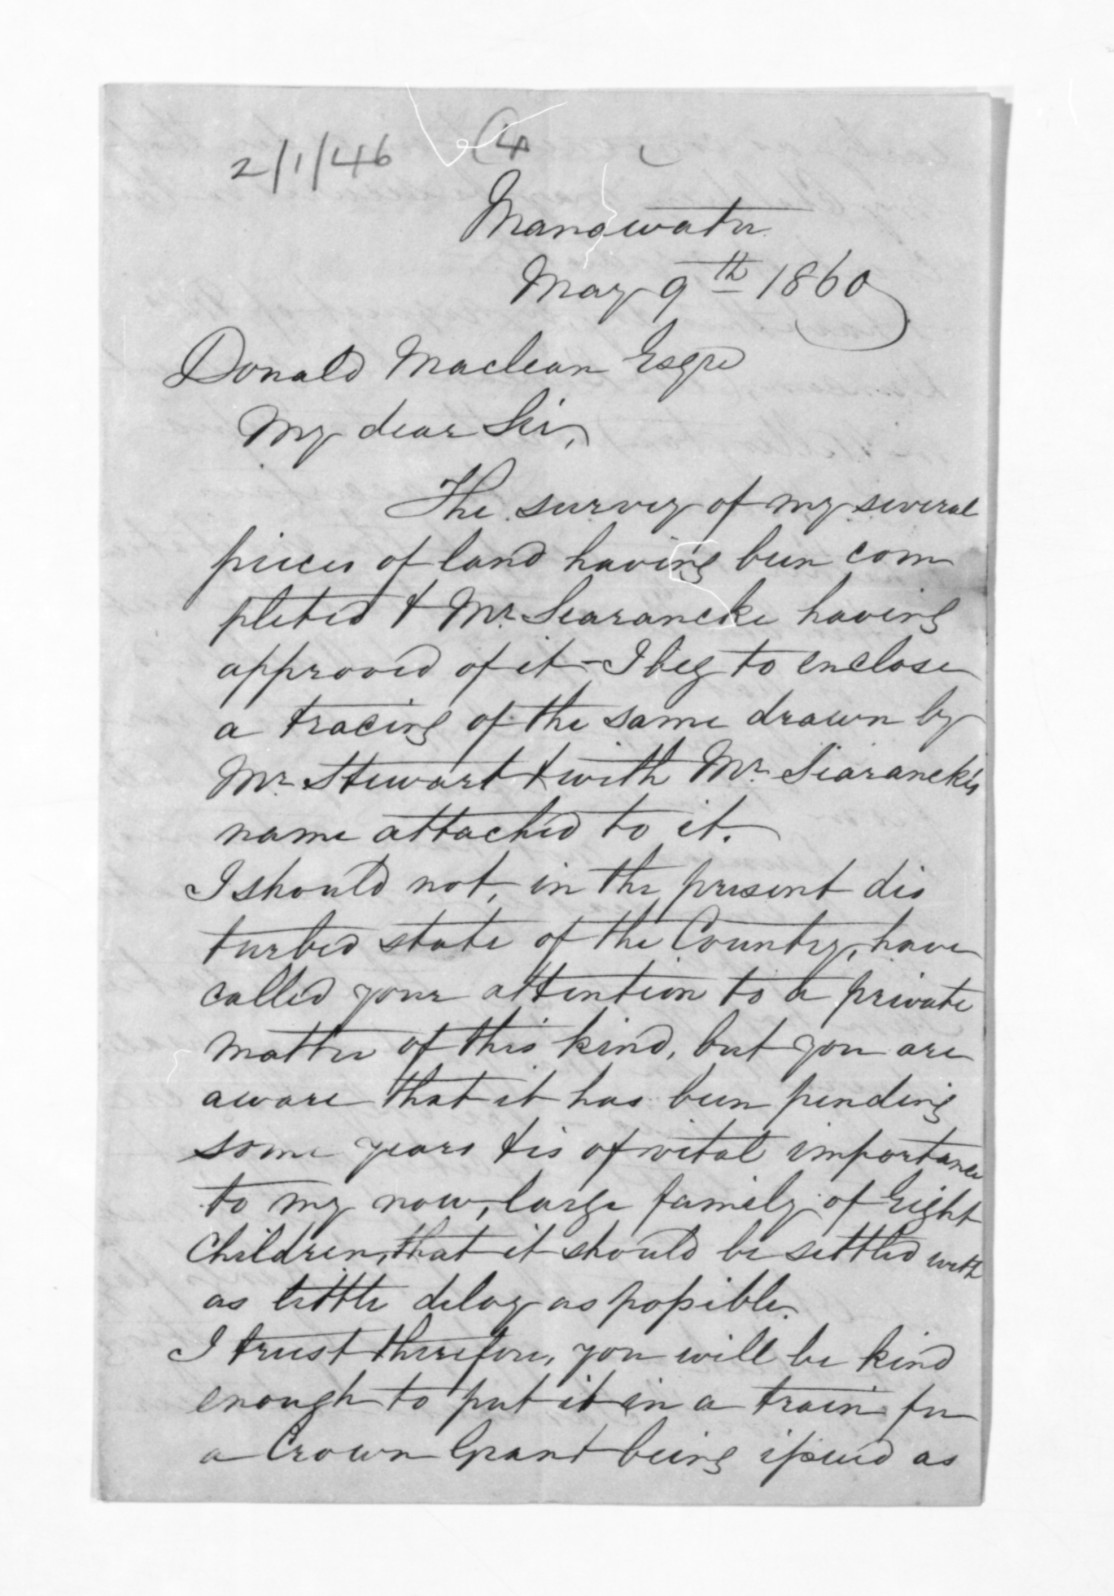 2/1/46 (4
Manawatu
May 9th 1860
Donald Maclean Esqre
My dear Sir,
The survey of my several
pieces of land having been com
pleted & Mr. Searancke having
approved of it - I beg to enclose
a tracing of the same drawn by
Mr. Stewart & with Mr. Searancke's
name attached to it.
I should not, in the present dis
turbed state of the Country, have
called your attention to a private
matter of this kind, but you are
aware that it has been pending
some years & is of vital importance
to my now, large family of Eight
Children, that it should be settled with
as little delay as possible.
I trust therefore, you will be kind
enough to put it in a train for
a Crown Grant being issued as